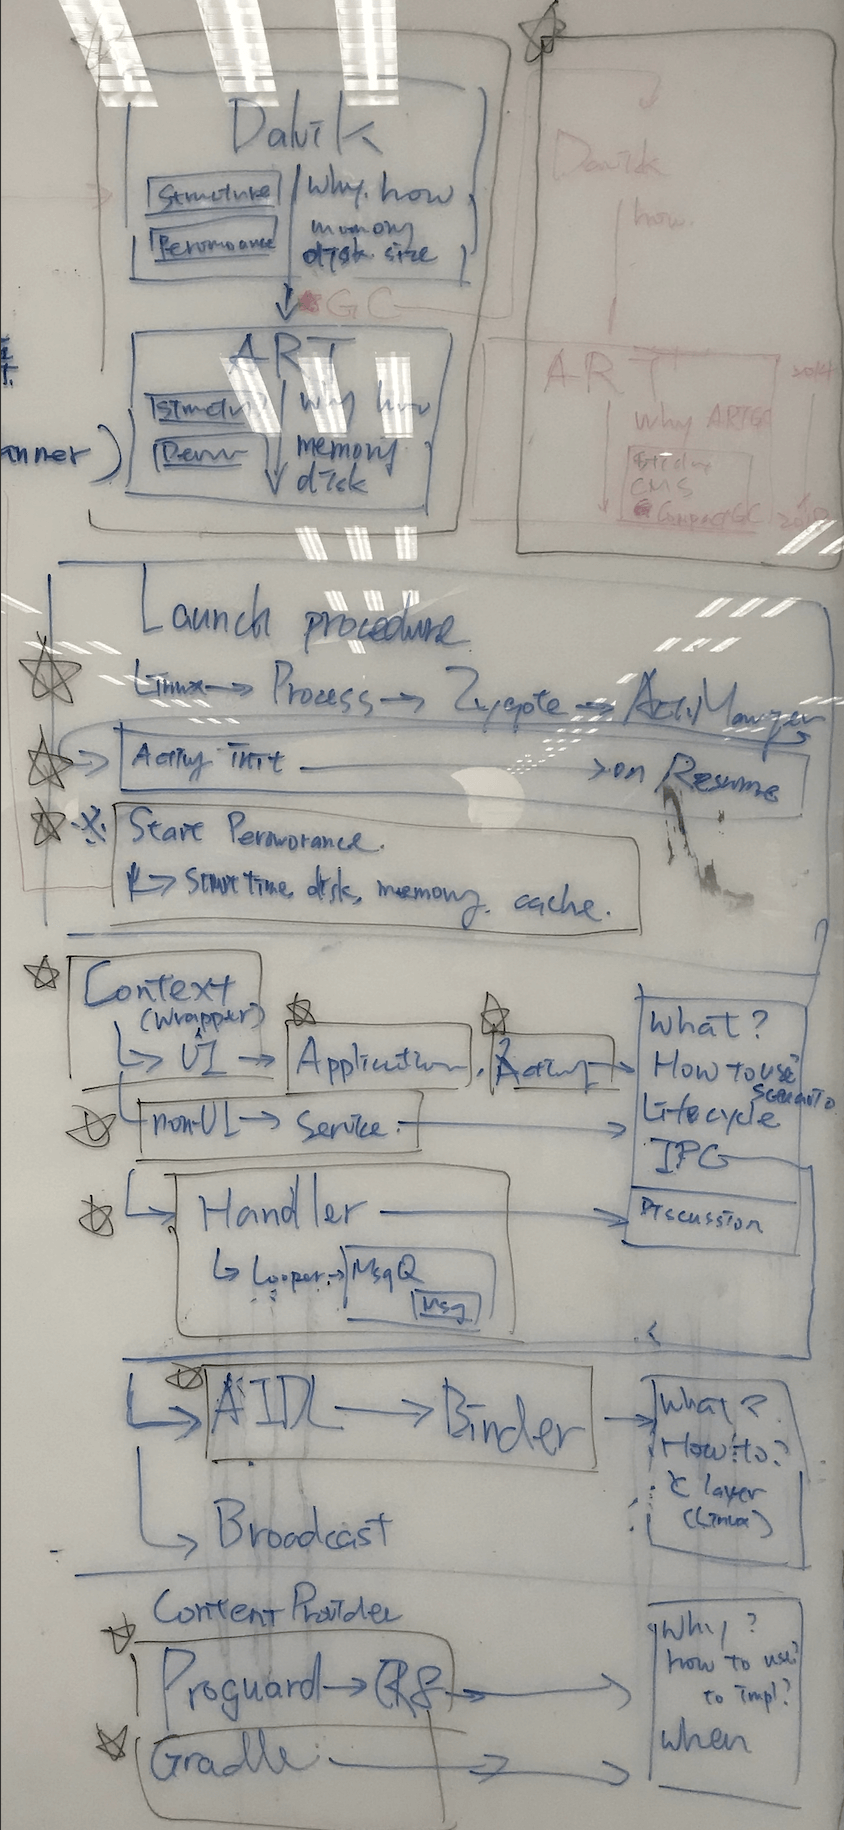 Dalvik
Structure
why. how
Peromoance
memory
disk size
GC
Dalvik
how.
ART
why how
memory
disk
ART
why ART GC
CMS
Compact GC
anner)
Launch procedure
Linux → Process → Zygote → Acti.Manger
Activity init → on Resume
※ Start Perworance.
↳ Start time, disk, memory. cache.
Context
(wrapper)
↳ UI → Application, Activity →
non-UI → Service. →
What?
How to use?
Scenario
Lifecycle
IPC
Discussion
↳ Handler →
↳ Looper → MsgQ
Msg
↳ AIDL → Binder →
What?
How to?
C layer
(Linux)
↳ Broadcast
Content Provider
Proguard → R8 →
Gradle →
Why?
how to use?
to impl?
when